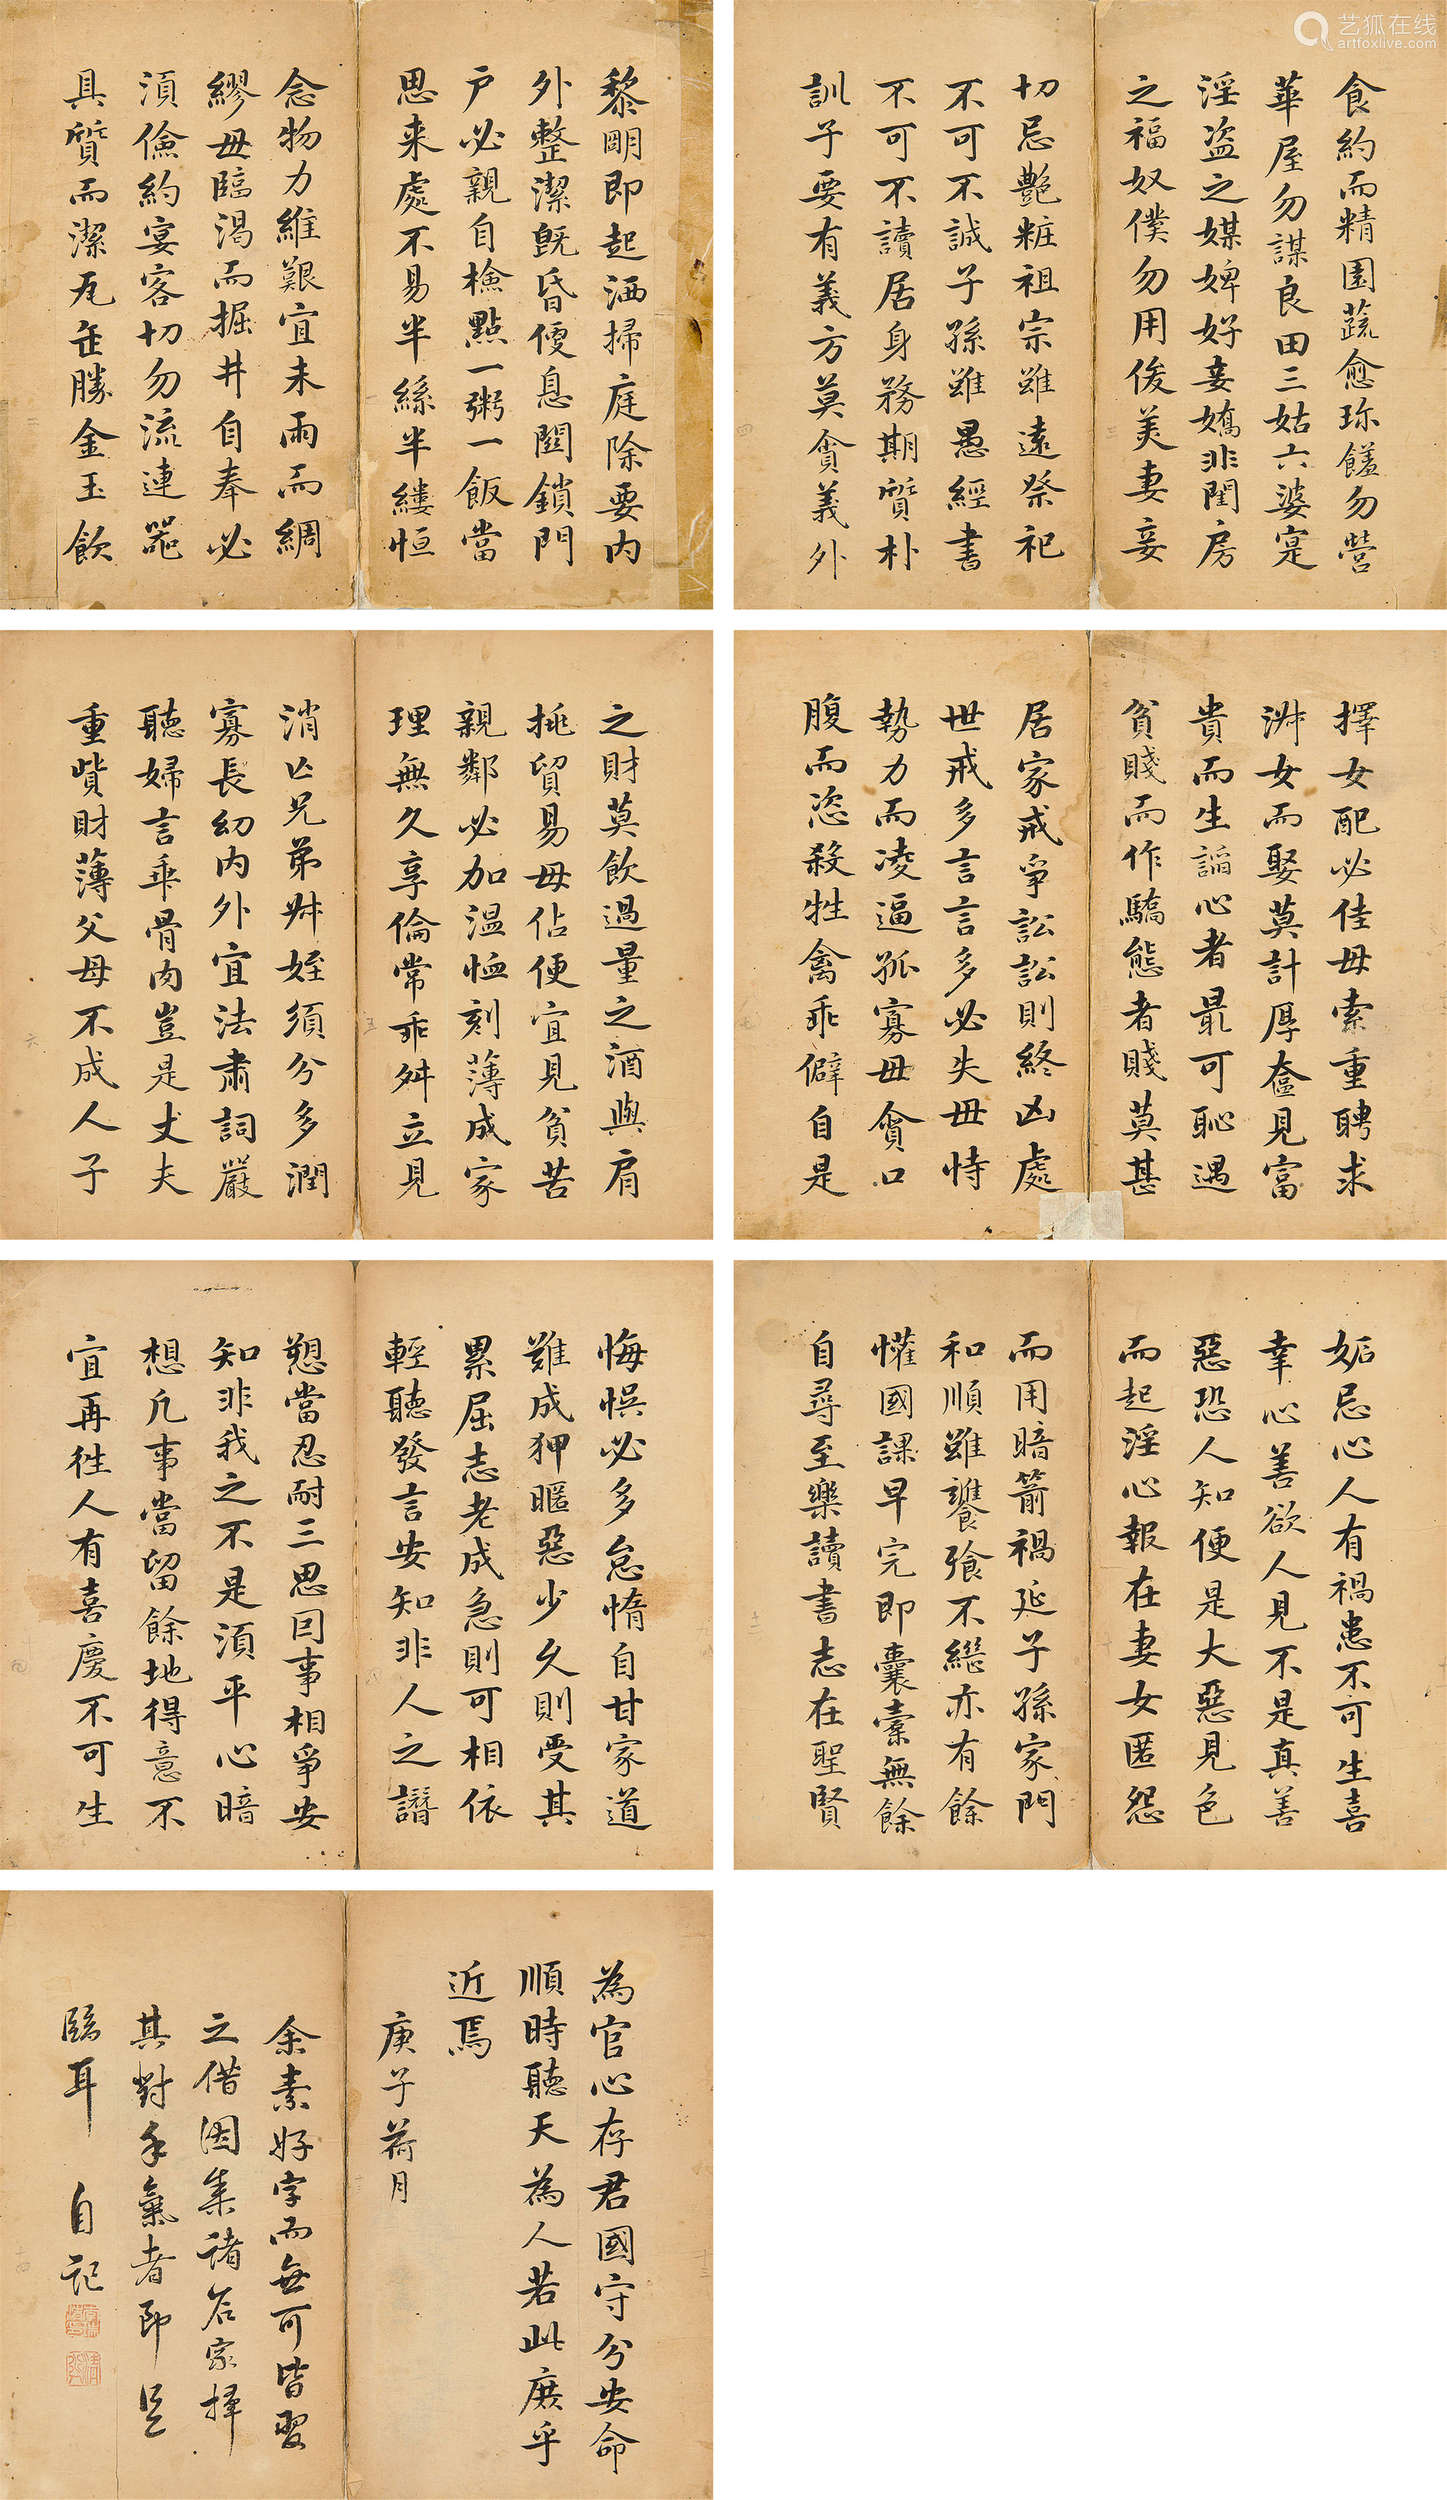 艺狐在线
artfoxlive.com
黎明即起洒掃庭除要内
外整潔旣昏便息関鎖門
户必親自檢點一粥一飯當
思来處不易半絲半縷恒
念物力維艱宜未雨而綢
繆毋臨渴而掘井自奉必
湏儉約宴客切勿流連器
具質而潔瓦缶勝金玉飲
食約而精園蔬愈珎饈勿營
華屋勿謀良田三姑六婆寔
淫盗之媒婢好妾嬌非閨房
之福奴僕勿用俊美妻妾
切忌艶粧祖宗雖遠祭祀
不可不誠子孫雖愚經書
不可不讀居身務期質朴
訓子要有義方莫貪義外
之財莫飲過量之酒與肩
挑貿易毋佔便宜見貧苦
親鄰必加温恤刻薄成家
理無久享倫常乖舛立見
消亡兄弟叔姪須分多潤
寡長幼内外宜法肅詞嚴
聽婦言乖骨肉豈是丈夫
重貲財薄父母不成人子
擇女配必佳毋索重聘求
淑女而娶莫計厚奩見富
貴而生謟心者最可恥遇
貧賤而作驕態者賤莫甚
居家戒爭訟訟則終凶處
世戒多言言多必失毋恃
勢力而凌逼孤寡毋貪口
腹而恣殺牲禽乖僻自是
悔悞必多怠惰自甘家道
難成狎暱惡少久則受其
累屈志老成急則可相依
輕聽發言安知非人之譖
愬當忍耐三思因事相爭安
知非我之不是湏平心暗
想凡事當留餘地得意不
宜再徃人有喜慶不可生
妬忌心人有禍患不可生喜
幸心善欲人見不是真善
惡恐人知便是大惡見色
而起淫心報在妻女匿怨
而用暗箭禍延子孫家門
和順雖饔飱不繼亦有餘
懽國課早完即囊橐無餘
自尋至樂讀書志在聖賢
為官心存君國守分安命
順時聽天為人若此庶乎
近焉
庚子荷月
余素好字而無可皆習
之借因集諸名家擇
其對手氣者即是
臨耳 自記